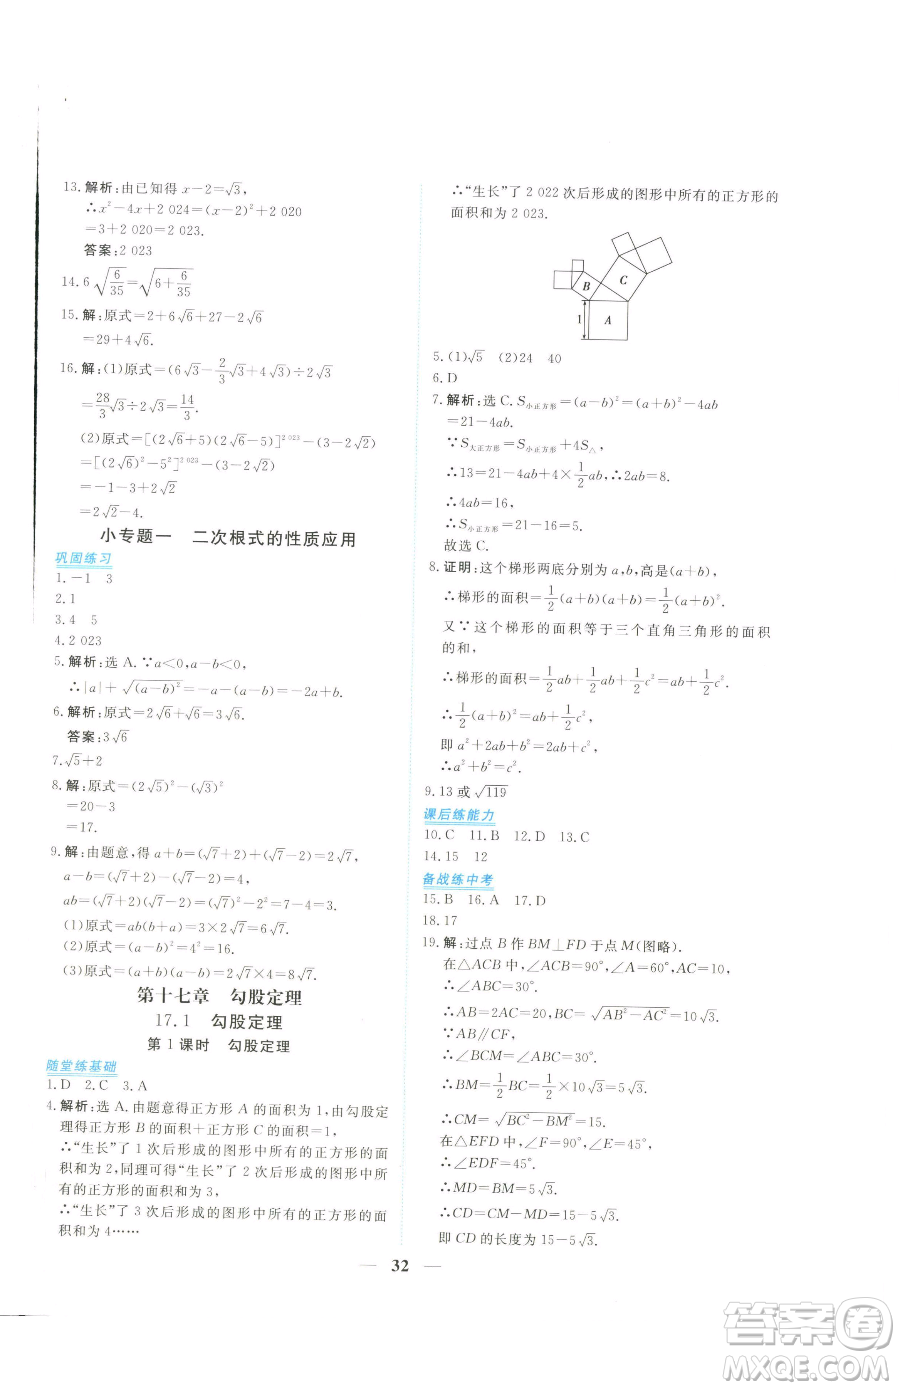 13.解析:由已知得 x-2=√3,
∴x²-4x+2 024=(x-2)²+2 020
=3+2 020=2 023.
答案:2 023
14.6√(6/35)=√(6+6/35)
15.解:原式=2+6√6+27-2√6
=29+4√6.
16.解:(1)原式=(6√3-2/3√3+4√3)÷2√3
=28/3√3÷2√3=14/3.
(2)原式=[(2√6+5)(2√6-5)]²⁰²³-(3-2√2)
=[(2√6)²-5²]²⁰²³-(3-2√2)
=-1-3+2√2
=2√2-4.
小专题一 二次根式的性质应用
巩固练习
1.-1 3
2.1
3.4 5
4.2 023
5.解析:选 A.∵a<0,a-b<0,
∴|a|+√(a-b)²=-a-(a-b)=-2a+b.
6.解析:原式=2√6+√6=3√6.
答案:3√6
7.√5+2
8.解:原式=(2√5)²-(√3)²
=20-3
=17.
9.解:由题意,得 a+b=(√7+2)+(√7-2)=2√7,
a-b=(√7+2)-(√7-2)=4,
ab=(√7+2)(√7-2)=7-4=3,
(1)原式=ab(b+a)=3×2√7=6√7.
(2)原式=(a-b)²=4²=16.
(3)原式=(a+b)(a-b)=2√7×4=8√7.
第十七章 勾股定理
17.1 勾股定理
第 1 课时 勾股定理
随堂练基础
1.D 2.C 3.A
4.解析:选 A.由题意得正方形 A 的面积为 1,由勾股定
理得正方形 B 的面积+正方形 C 的面积=1,
∴“生长”了 1 次后形成的图形中所有的正方形的面
积和为 2,同理可得“生长”了 2 次后形成的图形中所
有的正方形的面积和为 3,
∴“生长”了 3 次后形成的图形中所有的正方形的面
积和为 4……
∴“生长”了 2 022 次后形成的图形中所有的正方形的
面积和为 2 023.
B
C
1
A
5.(1)√5 (2)24 40
6.D
7.解析:选 C.S小正方形=(a-b)²=(a+b)²-4ab
=21-4ab.
∵S大正方形=S小正方形+4S△,
∴13=21-4ab+4×1/2ab,∴2ab=8.
∴4ab=16.
∴S小正方形=21-16=5.
故选 C.
8.证明:这个梯形两底分别为 a,b,高是(a+b),
∴梯形的面积=1/2(a+b)(a+b)=1/2(a+b)².
又∵这个梯形的面积等于三个直角三角形的面积
的和,
∴梯形的面积=1/2ab+1/2ab+1/2c².
∴1/2(a+b)²=ab+1/2c²,
即 a²+2ab+b²=2ab+c².
∴a²+b²=c².
9.13 或√119
课后练能力
10.C 11.B 12.D 13.C
14.15 12
备战练中考
15.B 16.A 17.D
18.17
19.解:过点 B 作 BM⊥FD 于点 M(图略).
在△ACB 中,∠ACB=90°,∠A=60°,AC=10,
∴∠ABC=30°.
∴AB=2AC=20,BC=√(AB²-AC²)=10√3.
∵AB∥CF,
∴∠BCM=∠ABC=30°.
∴BM=1/2BC=1/2×10√3=5√3.
∴CM=√(BC²-BM²)=15.
在△EFD 中,∠F=90°,∠E=45°,
∴∠EDF=45°.
∴MD=BM=5√3.
∴CD=CM-MD=15-5√3,
即 CD 的长度为 15-5√3.
32
答案圈
MXQE.COM